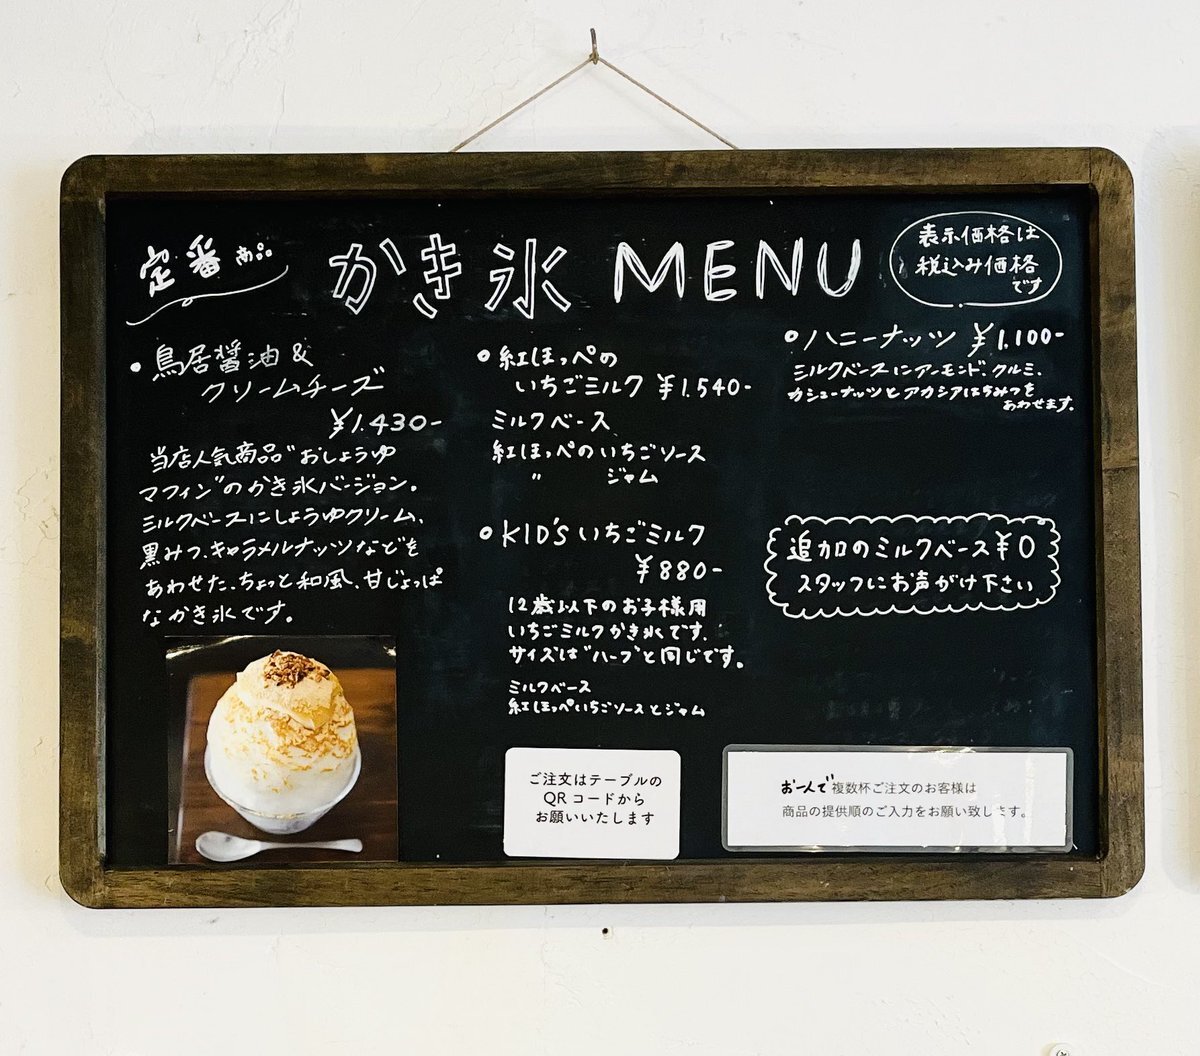 定番の
かき氷 MENU
表示価格は
税込み価格
です
• 鳥居醤油&
クリームチーズ
¥1.430-
当店人気商品"おしょうゆ
マフィン"のかき氷バージョン。
ミルクベースにしょうゆクリーム、
黒みつ、キャラメルナッツなどを
あわせた、ちょっと和風、甘じょっぱ
なかき氷です。
• 紅ほっぺの
いちごミルク ¥1.540-
ミルクベース
紅ほっぺのいちごソース
〃 ジャム
• KID'S いちごミルク
¥880-
12歳以下のお子様用
いちごミルクかき氷です。
サイズは"ハーフ"と同じです。
ミルクベース
紅ほっぺいちごソースとジャム
• ハニーナッツ ¥1.100-
ミルクベースにアーモンド、クルミ、
カシューナッツとアカシアはちみつを
あわせます。
追加のミルクベース¥0
スタッフにお声がけ下さい
ご注文はテーブルの
QRコードから
お願いいたします
お一人で複数杯ご注文のお客様は
商品の提供順のご入力をお願い致します。